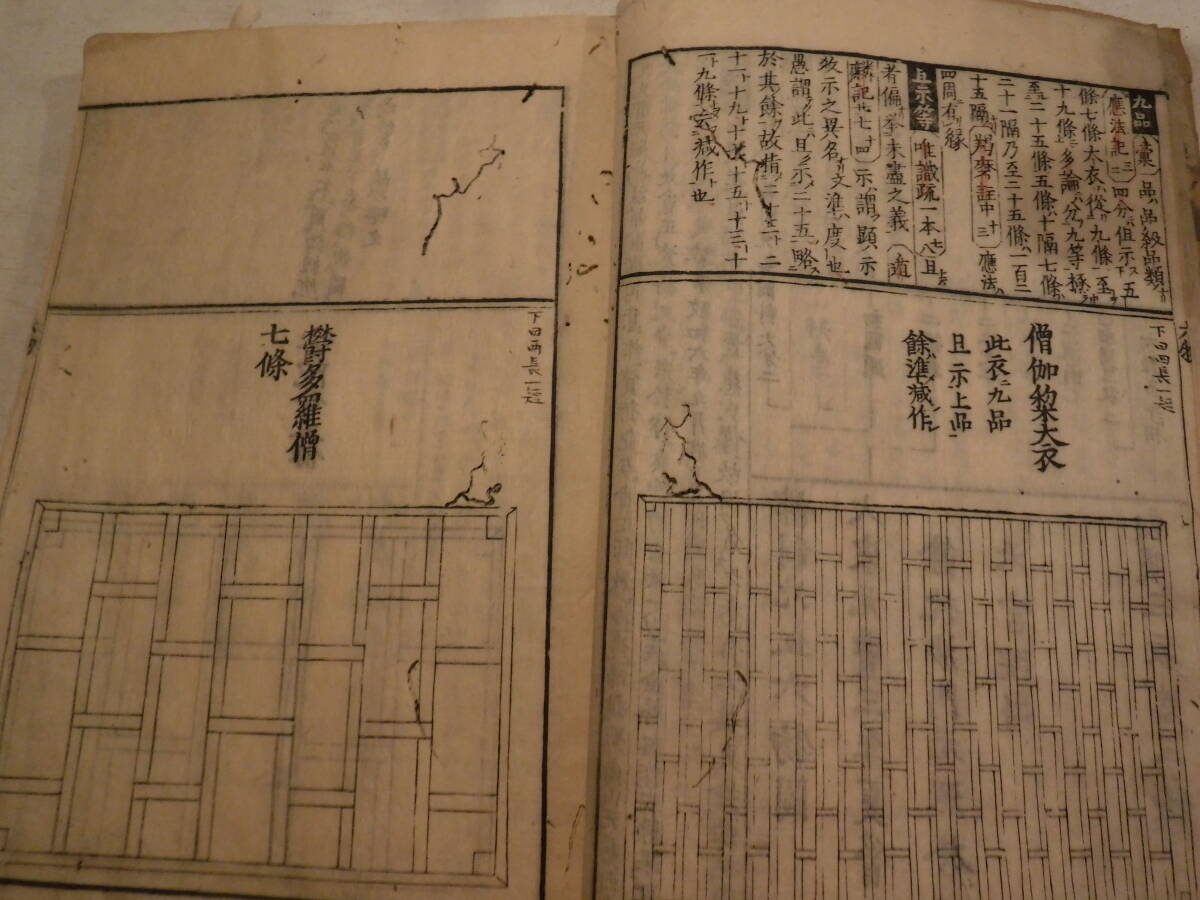 九品 稟 品品級品類
應法記 四分但示五
條七條大衣從九條至
十九條多論分九等極
至二十五條五條十隔七條
二十一隔乃至二十五條一百二
十五隔 羯磨註中 應法
四周有緣
且示等 唯識疏一本八且
者偏舉未盡之義
記廿七 示謂顯示
教示之異名文準度也
愚謂此且示二十五略
於其餘故指二十三二
十一十九十七十五十三十
一九條云減作也
下曰四長一短
僧伽梨大衣
此衣九品
且示上品
餘準減作
下曰兩長一短
鬱多羅僧
七條